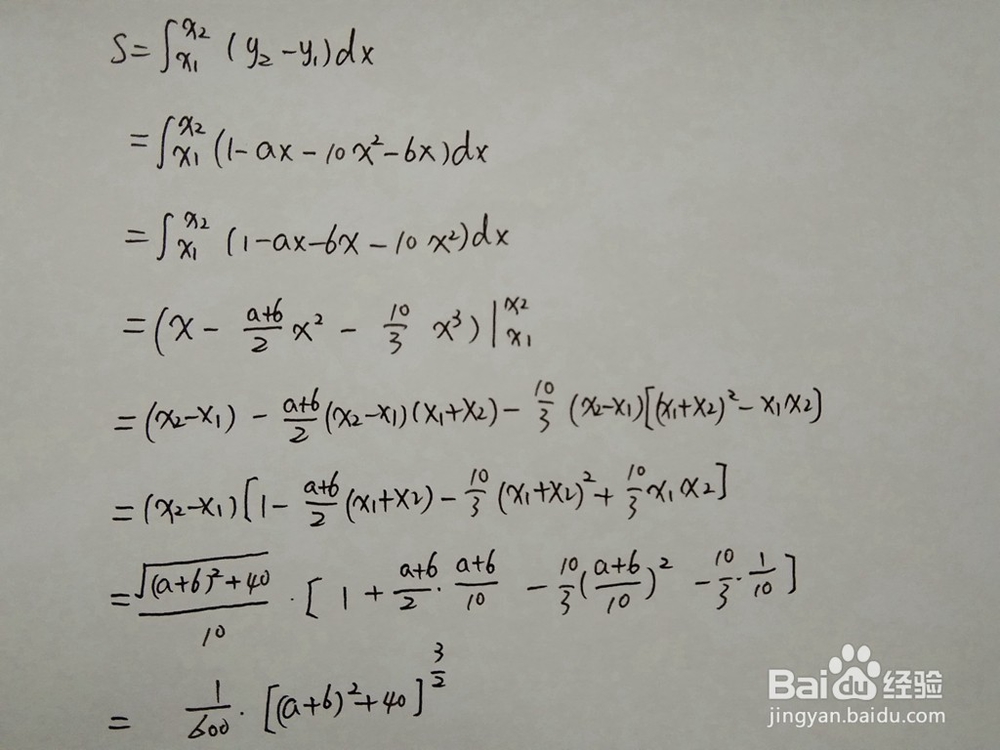 S=∫_{x1}^{x2} (y2-y1)dx
=∫_{x1}^{x2} (1-ax-10x²-6x)dx
=∫_{x1}^{x2} (1-ax-6x-10x²)dx
=(x - \frac{a+6}{2} x² - \frac{10}{3} x³)|_{x1}^{x2}
=(x2-x1) - \frac{a+6}{2}(x2-x1)(x1+x2) - \frac{10}{3}(x2-x1)[(x1+x2)²-x1x2]
=(x2-x1)[1- \frac{a+6}{2}(x1+x2) - \frac{10}{3}(x1+x2)²+ \frac{10}{3}x1x2]
= \frac{\sqrt{(a+6)²+40}}{10} · [1+ \frac{a+6}{2}·\frac{a+6}{10} - \frac{10}{3}(\frac{a+6}{10})² - \frac{10}{3}·\frac{1}{10}]
= \frac{1}{600}·[(a+6)²+40]^{\frac{3}{2}}
Baidu经验
jingyan.baidu.com